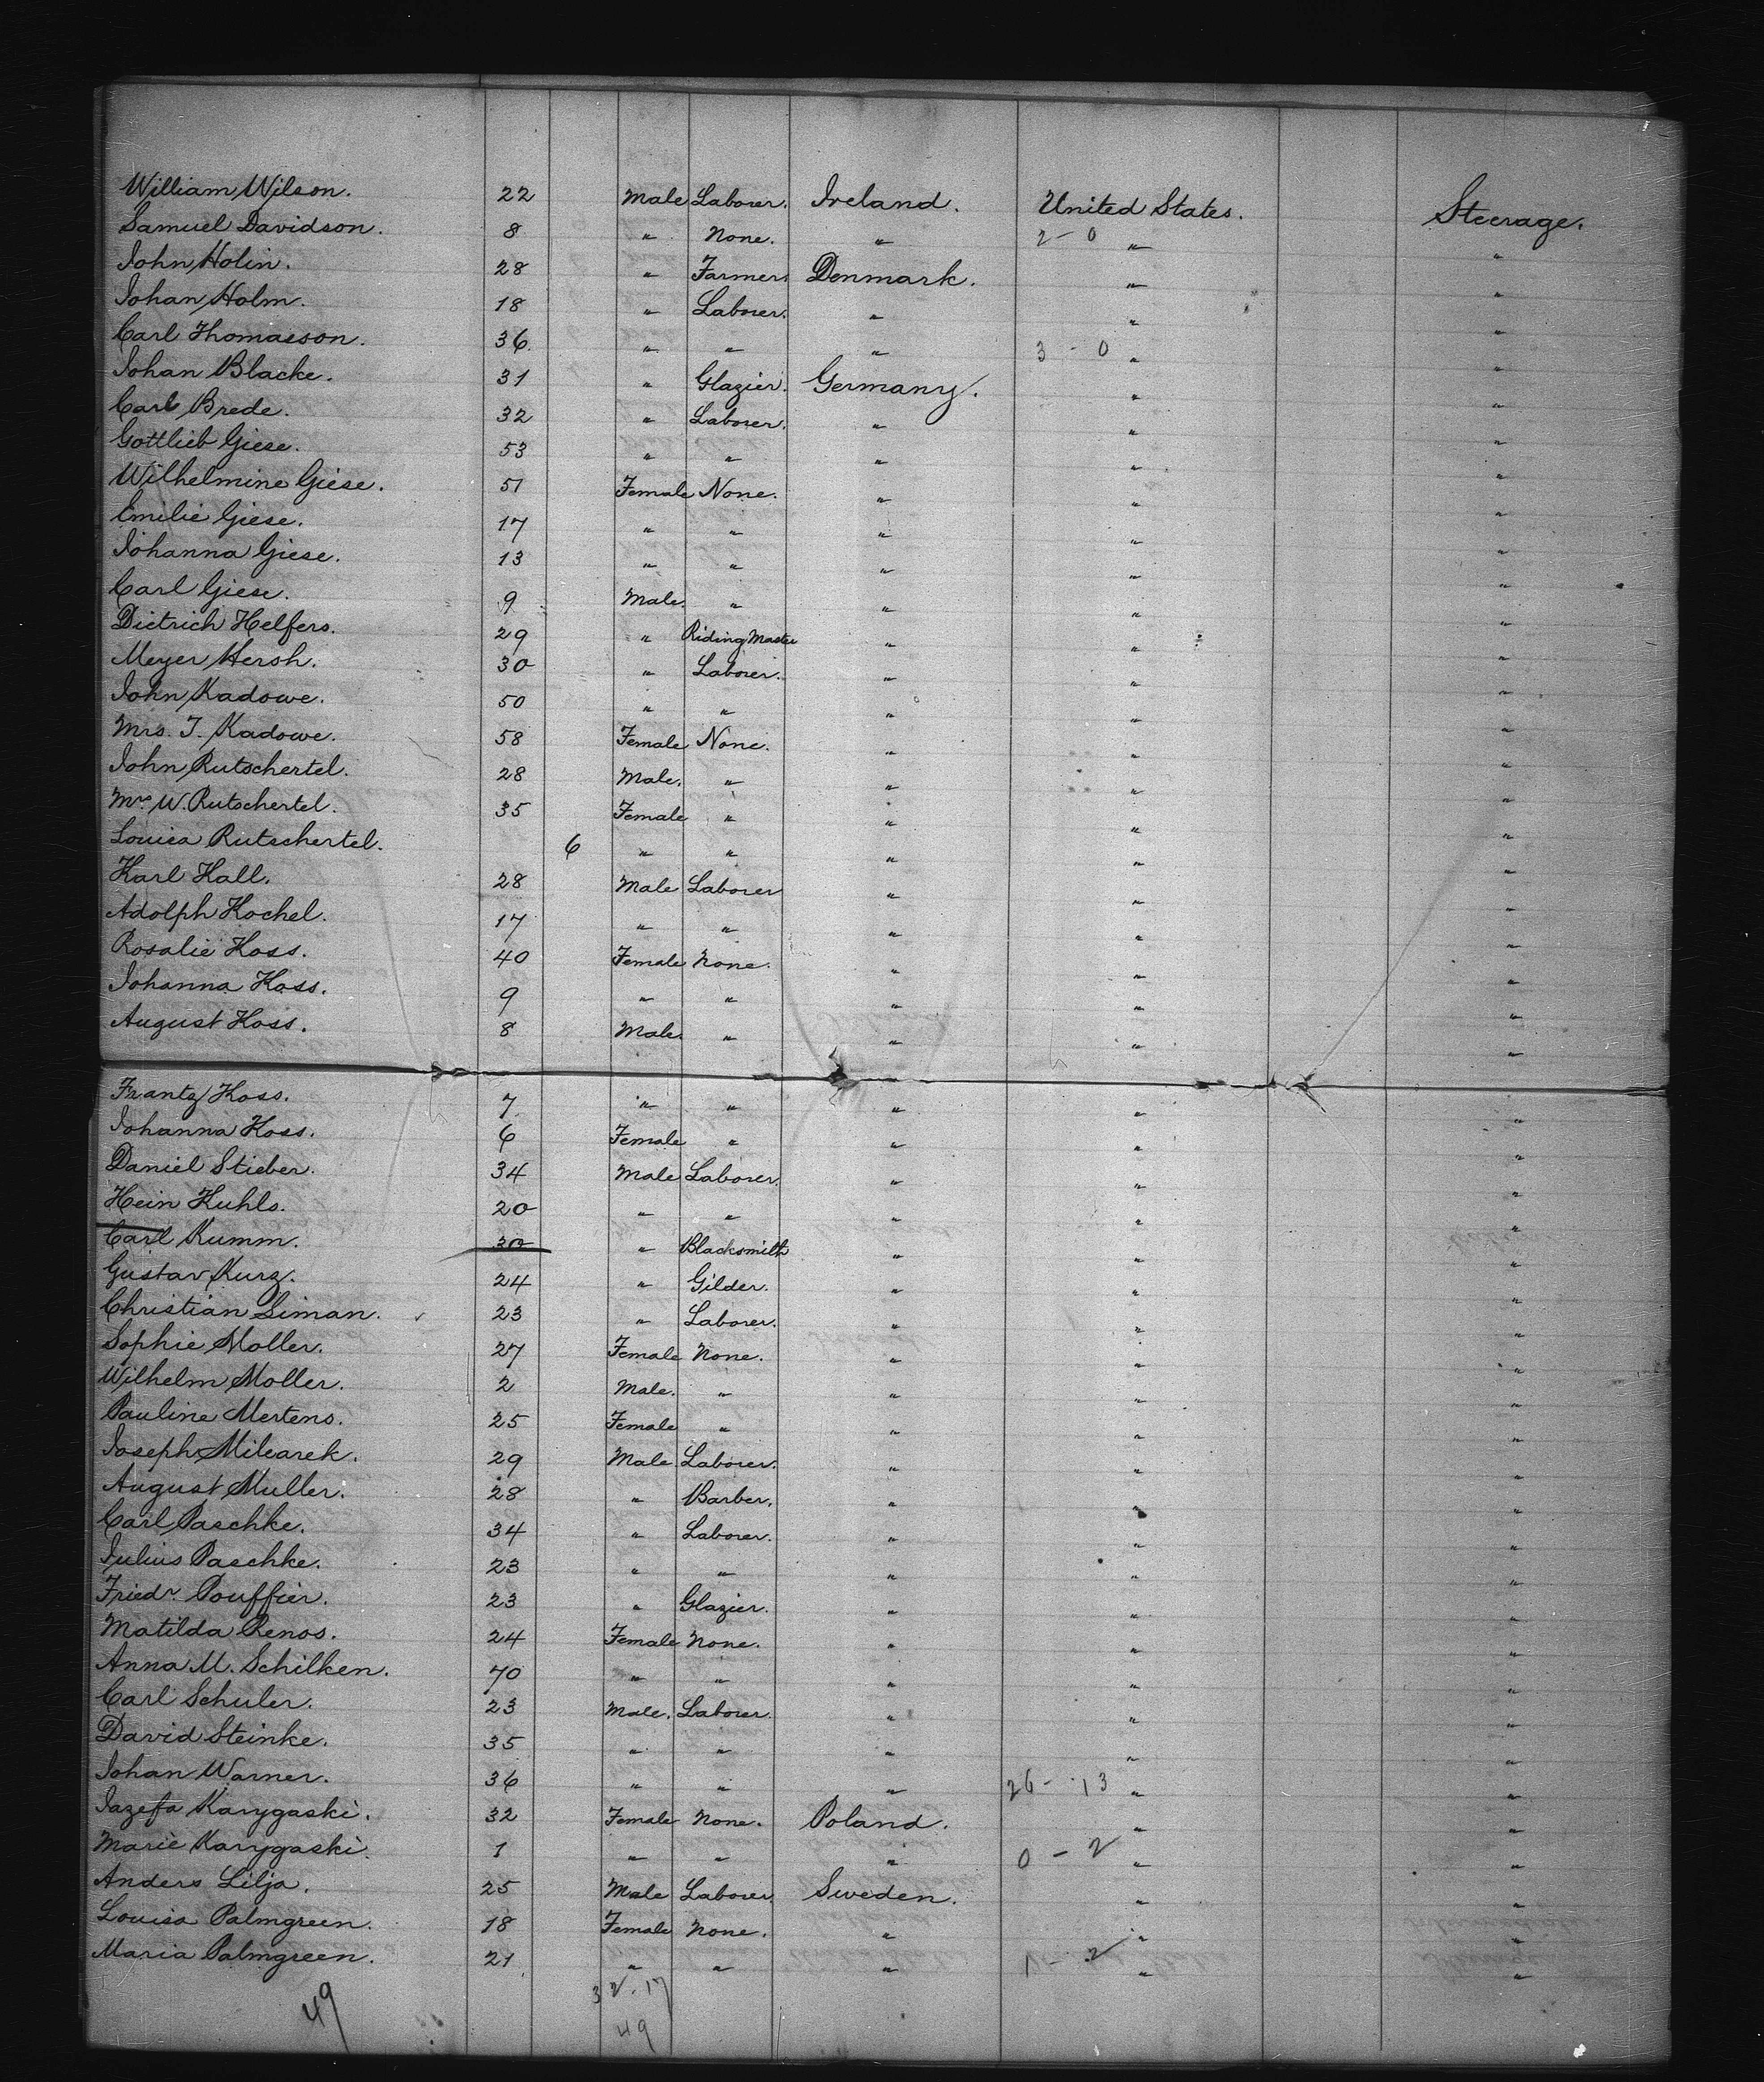 William Wilson. 22 Male Laborer. Ireland. United States. Steerage.
Samuel Davidson. 8 " None. " 2-0 " "
John Holin. 28 " Farmer. Denmark. " "
Johan Holm. 18 " Laborer. " " "
Carl Thomasson. 36. " " " 3-0 " "
Johan Blacke. 31 " Glazier. Germany. " "
Carl Brede. 32 " Laborer. " " "
Gottlieb Giese. 53 " " " " "
Wilhelmine Giese. 51 Female None. " " "
Emilie Giese. 17 " " " " "
Johanna Giese. 13 " " " " "
Carl Giese. 9 Male. " " " "
Dietrich Helfers. 29 " Riding Master " " "
Meyer Hersh. 30 " Laborer. " " "
John Kadowe. 50 " " " " "
Mrs. J. Kadowe. 58 Female None. " " "
John Rutschertel. 28 Male. " " " "
Mrs W. Rutschertel. 35 Female " " " "
Louisa Rutschertel. 6 " " " " "
Karl Kall. 28 Male Laborer " " "
Adolph Kochel. 17 " " " " "
Rosalie Koss. 40 Female None. " " "
Johanna Koss. 9 " " " " "
August Koss. 8 Male. " " " "
Frantz Koss. 7 " " " " "
Johanna Koss. 6 Female " " " "
Daniel Stieber. 34 Male Laborer. " " "
Hein Kuhls. 20 " " " " "
Carl Kumm. 30 " Blacksmith " " "
Gustav Kurz. 24 " Gilder. " " "
Christian Siman. 23 " Laborer. " " "
Sophie Moller. 27 Female None. " " "
Wilhelm Moller. 2 Male. " " " "
Pauline Mertens. 25 Female " " " "
Joseph Milearek. 29 Male Laborer. " " "
August Muller. 28 " Barber. " " "
Carl Paschke. 34 " Laborer. " " "
Julius Paschke. 23 " " " " "
Friedr. Pouffier. 23 " Glazier. " " "
Matilda Renos. 24 Female None. " " "
Anna M. Schilken. 70 " " " " "
Carl Schuler. 23 Male. Laborer. " " "
David Steinke. 35 " " " " "
Johan Warner. 36 " " " 26-13 " "
Jazefa Karygaski. 32 Female None. Poland. " "
Marie Karygaski. 1 " " " 0-2 " "
Anders Lilja. 25 Male Laborer. Sweden. " "
Louisa Palmgreen. 18 Female None. " " "
Maria Palmgreen. 21 " " " 1-2 " "
49 32.17
49